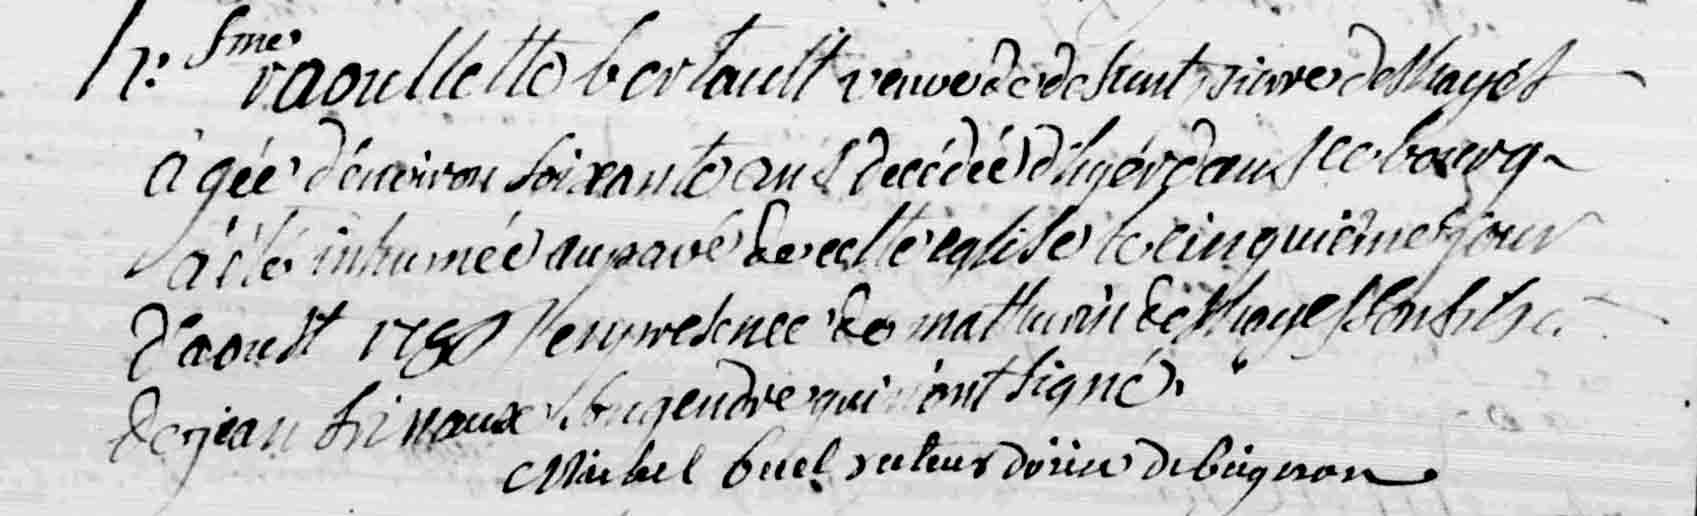 h: fme
raoullette bertault veuve de defunt pierre deshayes
agée d'environ soixante ans decédée d'hyer dans ce bourg
a été inhumée au pavé de cette eglise le cinquiéme jour
d'aoust en presence de mathurin deshayes son fils
de jean son gendre qui n'ont signé.
Michel buel recteur